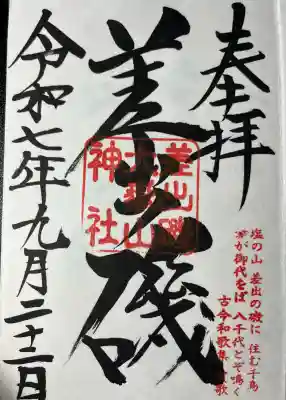 奉拝
差出磯
差出磯
大嶽山
神社
令和七年九月二十二日
塩の山 差出の磯に 住む千鳥
君が御代をば 八千代とぞ鳴く
古今和歌集 賀歌